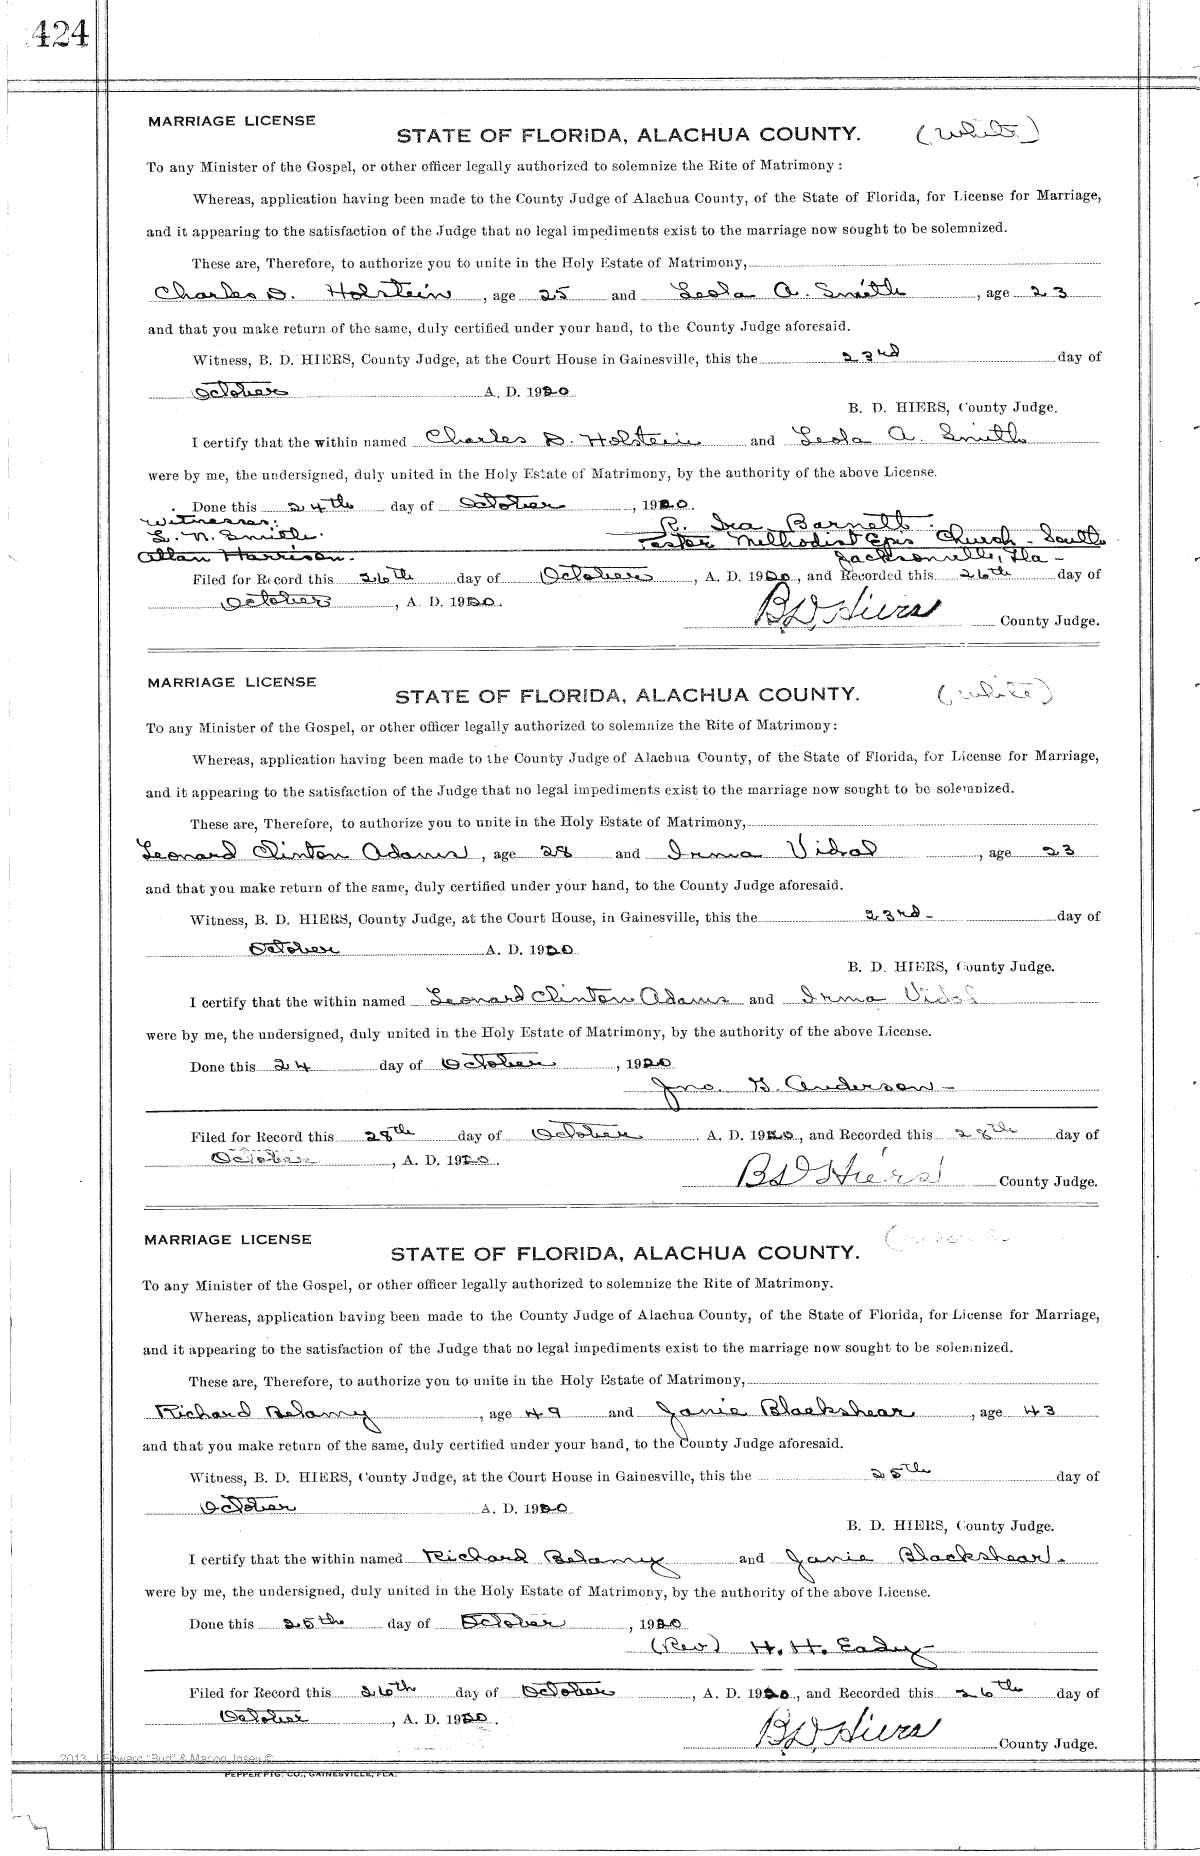 424
MARRIAGE LICENSE
STATE OF FLORIDA, ALACHUA COUNTY. (White)
To any Minister of the Gospel, or other officer legally authorized to solemnize the Rite of Matrimony:
Whereas, application having been made to the County Judge of Alachua County, of the State of Florida, for License for Marriage,
and it appearing to the satisfaction of the Judge that no legal impediments exist to the marriage now sought to be solemnized.
These are, Therefore, to authorize you to unite in the Holy Estate of Matrimony,
Charles D. Holstein, age 25 and Leola A. Smith, age 23
and that you make return of the same, duly certified under your hand, to the County Judge aforesaid.
Witness, B. D. HIERS, County Judge, at the Court House in Gainesville, this the 23rd day of
October A. D. 1920.
B. D. HIERS, County Judge.
I certify that the within named Charles D. Holstein and Leola A. Smith
were by me, the undersigned, duly united in the Holy Estate of Matrimony, by the authority of the above License.
Done this 24th day of October, 1920.
Witnesses: R. Ira Barnett.
L. N. Smith. Pastor Methodist Epis Church - South
Allan Harrison. Jacksonville, Fla -
Filed for Record this 26th day of October, A. D. 1920, and Recorded this 26th day of
October, A. D. 1920.
B.D. Hiers County Judge.
MARRIAGE LICENSE
STATE OF FLORIDA, ALACHUA COUNTY. (White)
To any Minister of the Gospel, or other officer legally authorized to solemnize the Rite of Matrimony:
Whereas, application having been made to the County Judge of Alachua County, of the State of Florida, for License for Marriage,
and it appearing to the satisfaction of the Judge that no legal impediments exist to the marriage now sought to be solemnized.
These are, Therefore, to authorize you to unite in the Holy Estate of Matrimony,
Leonard Clinton Adams, age 28 and Irma Vidal, age 23
and that you make return of the same, duly certified under your hand, to the County Judge aforesaid.
Witness, B. D. HIERS, County Judge, at the Court House, in Gainesville, this the 23rd - day of
October A. D. 1920
B. D. HIERS, County Judge.
I certify that the within named Leonard Clinton Adams and Irma Vidal
were by me, the undersigned, duly united in the Holy Estate of Matrimony, by the authority of the above License.
Done this 24 day of October, 1920
Jno. G. Anderson -
Filed for Record this 28th day of October A. D. 1920, and Recorded this 28th day of
October, A. D. 1920.
B D Hiers County Judge.
MARRIAGE LICENSE
STATE OF FLORIDA, ALACHUA COUNTY.
To any Minister of the Gospel, or other officer legally authorized to solemnize the Rite of Matrimony.
Whereas, application having been made to the County Judge of Alachua County, of the State of Florida, for License for Marriage,
and it appearing to the satisfaction of the Judge that no legal impediments exist to the marriage now sought to be solemnized.
These are, Therefore, to authorize you to unite in the Holy Estate of Matrimony,
Richard Belamy, age 49 and Janie Blackshear, age 43
and that you make return of the same, duly certified under your hand, to the County Judge aforesaid.
Witness, B. D. HIERS, County Judge, at the Court House in Gainesville, this the 25th day of
October A. D. 1920
B. D. HIERS, County Judge.
I certify that the within named Richard Belamy and Janie Blackshear.
were by me, the undersigned, duly united in the Holy Estate of Matrimony, by the authority of the above License.
Done this 25th day of October, 1920
(Rev) H. H. Eady -
Filed for Record this 26th day of October, A. D. 1920, and Recorded this 26th day of
October, A. D. 1920.
B.D. Hiers County Judge.
2013 J Edward "Bud" & Marion Josey ©
PEPPER PTG. CO., GAINESVILLE, FLA.